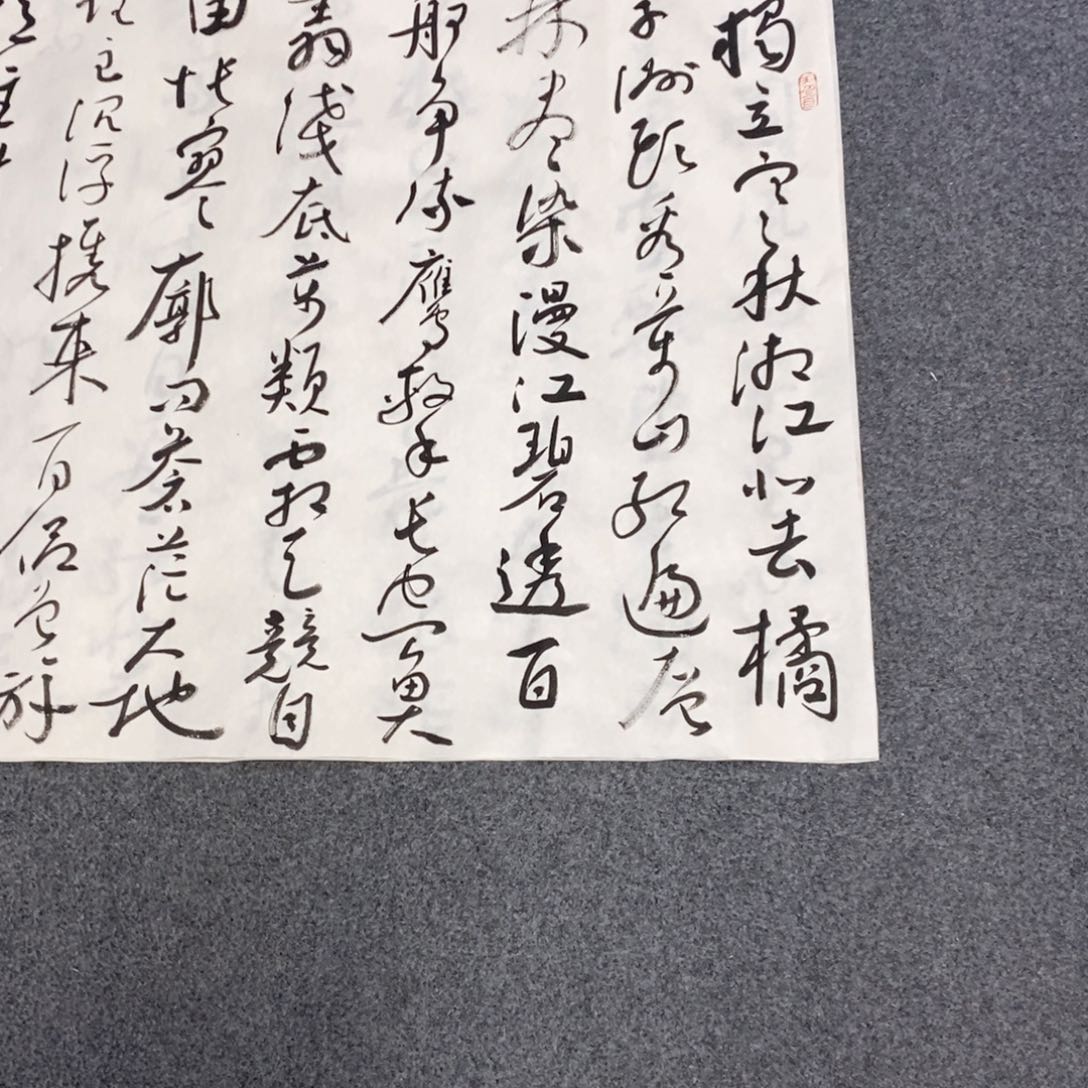 獨立寒秋湘江北去橘
子洲頭看萬山紅遍層
林盡染漫江碧透百
舸爭流鷹擊長空魚
翔淺底萬類霜天競自
由悵寥廓問蒼茫大地
主沉浮攜來百侶曾游